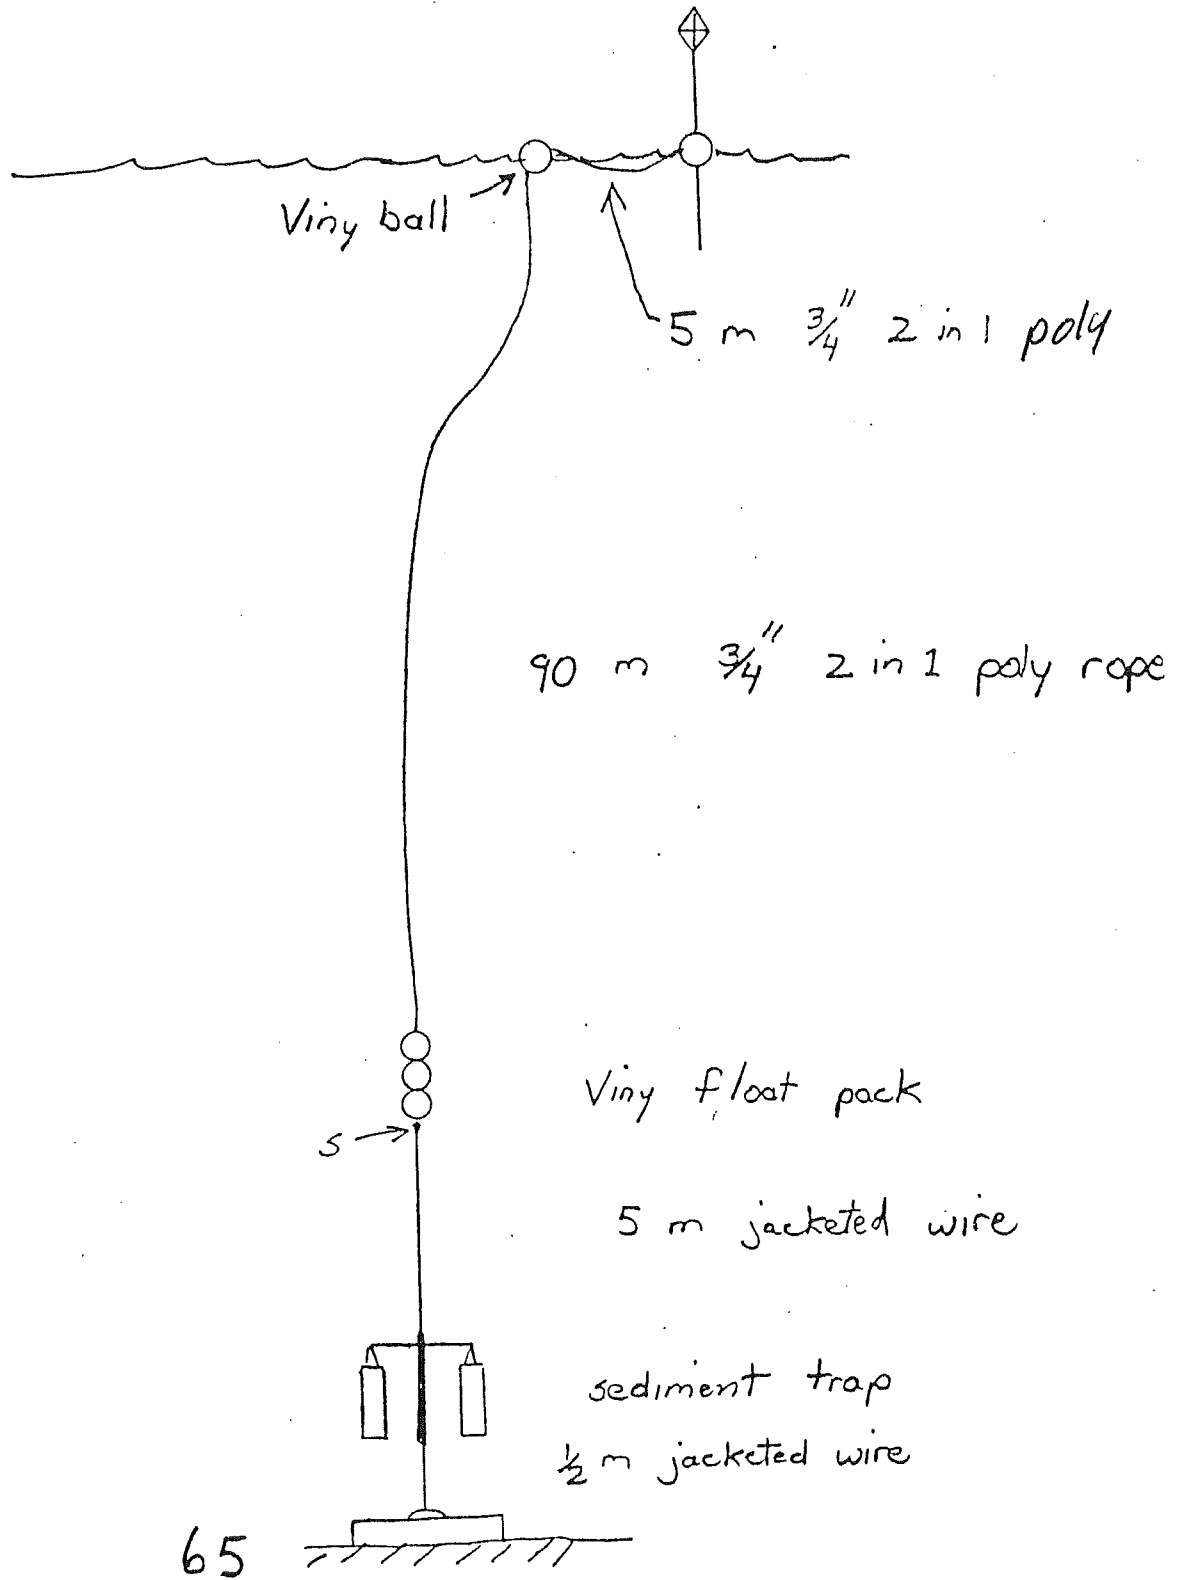 Viny ball
5 m 3/4" 2 in 1 poly
90 m 3/4" 2 in 1 poly rope
Viny float pack
S
5 m jacketed wire
sediment trap
1/2 m jacketed wire
65